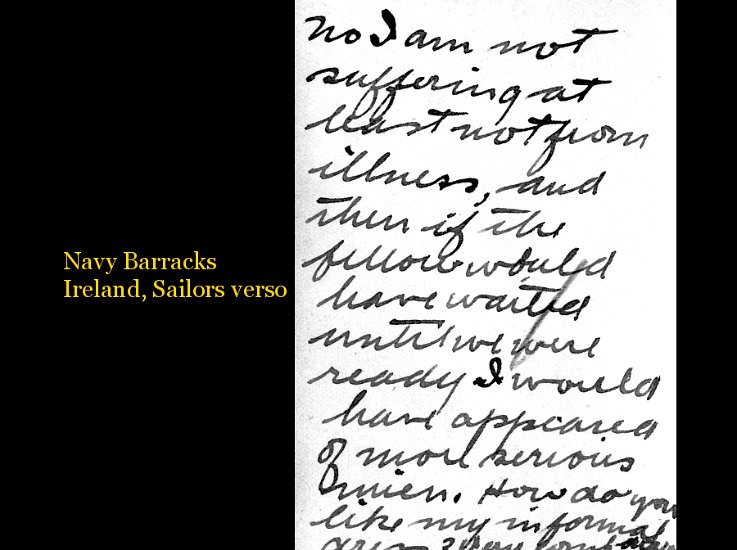 Navy Barracks
Ireland, Sailors verso
no I am not
suffering at
least not from
illness, and
then if the
fellow would
have waited
until we were
ready I would
have appeared
of more serious
mien. How do you
like my informal